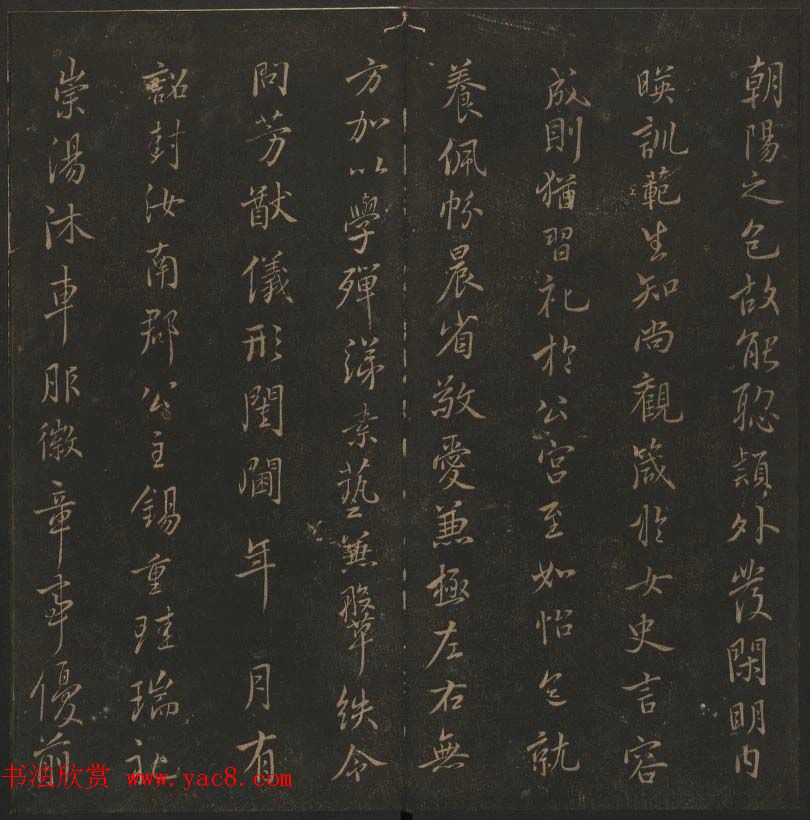 朝陽之色故能聡穎外發閑明内
暎訓範生知尚觀箴於女史言容
成則猶習礼於公宮至如怡色就
養佩帉晨省敬愛兼極左右無
方加以學殫綈素藝兼鞶紩令
問芳猷儀形閨閫年 月有
詔封汝南郡公主錫重珪瑞礼
崇湯沐車服徽章事優前
书法欣赏 www.yac8.com